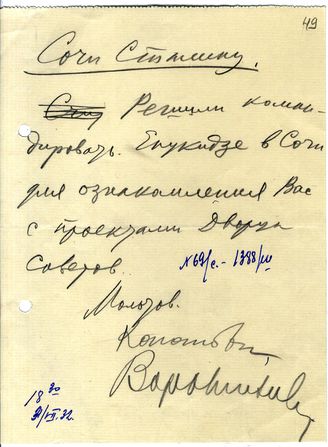 49
Сочи Сталину.
Решили коман-
дировать Енукидзе в Сочи
для ознакомления Вас
с проектами Дворца
Советов.
Молотов.
Каганович,
Ворошилов
18 30